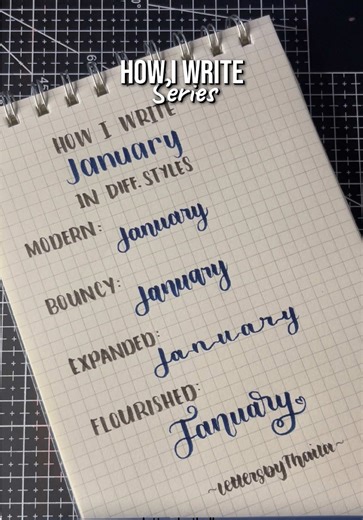 HOW I WRITE
Series
HOW I WRITE
January
IN DIFF. STYLES
MODERN: January
BOUNCY: January
EXPANDED: January
FLOURISHED: January
~lettersbyThaila~